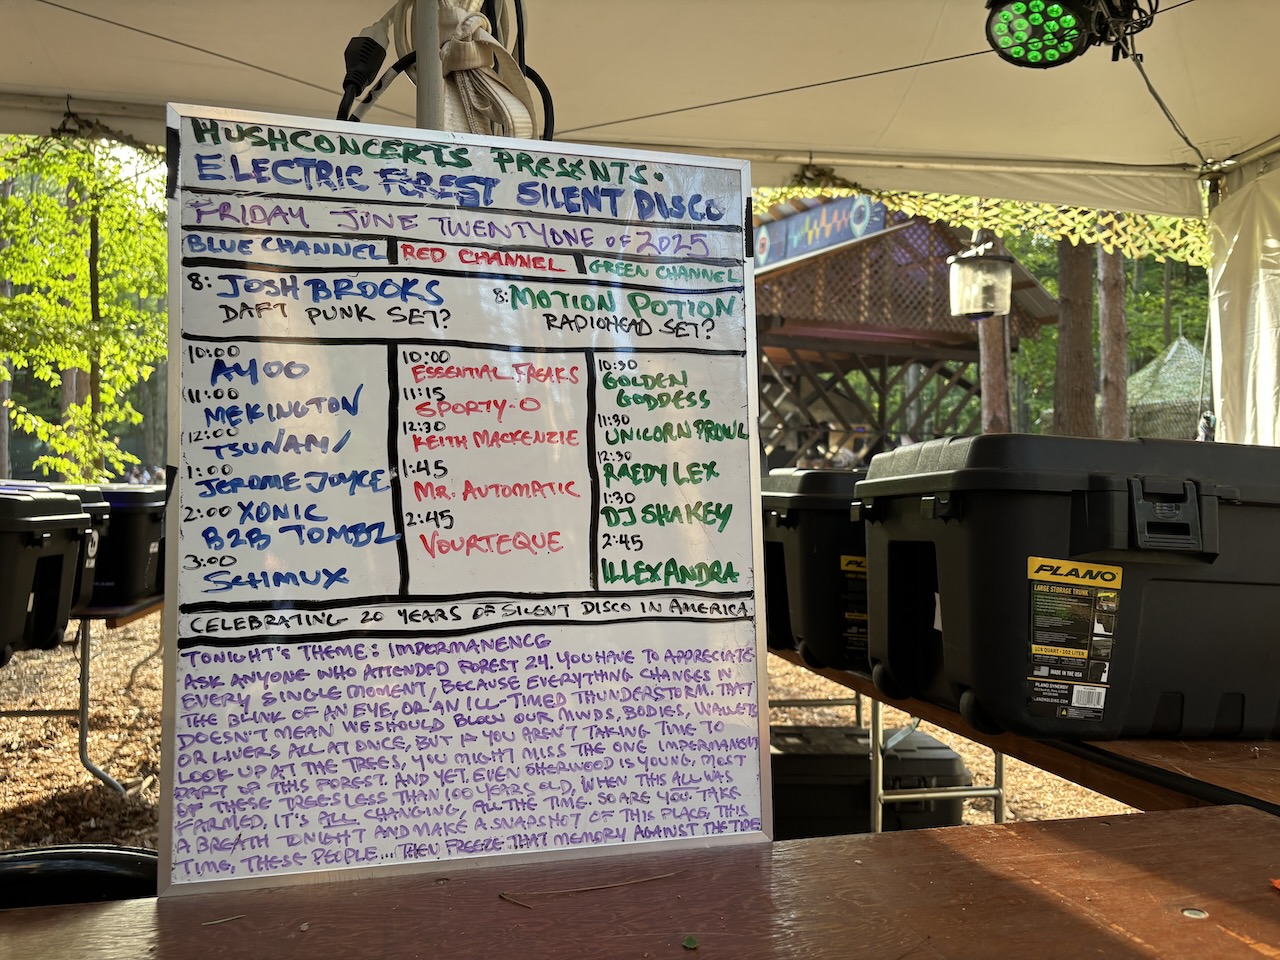 HUSHCONCERTS PRESENTS.
ELECTRIC FOREST SILENT DISCO
FRIDAY JUNE TWENTYONE OF 2025
BLUE CHANNEL
RED CHANNEL
GREEN CHANNEL
8: JOSH BROOKS
DAFT PUNK SET?
8: MOTION POTION
RADIOHEAD SET?
10:00
AYOO
11:00
MEKINGTON
12:00
TSUNAMI
1:00
JEROME JOYCE
2:00 XONIC
B2B TOMBZ
3:00
SCHMUX
10:00
ESSENTIAL FREAKS
11:15
SPORTY-O
12:30
KEITH MACKENZIE
1:45
MR. AUTOMATIC
2:45
VOURTEQUE
10:30
GOLDEN
GODDESS
11:30
UNICORN PROWL
12:30
RAEDY LEX
1:30
DJ SHAKEY
2:45
ILLEXANDRA
CELEBRATING 20 YEARS OF SILENT DISCO IN AMERICA
TONIGHT'S THEME: IMPERMANENCE
ASK ANYONE WHO ATTENDED FOREST 24. YOU HAVE TO APPRECIATE
EVERY SINGLE MOMENT, BECAUSE EVERYTHING CHANGES IN
THE BLINK OF AN EYE, OR AN ILL-TIMED THUNDERSTORM. THAT
DOESN'T MEAN WE SHOULD BLOW OUR MINDS, BODIES, WALLETS
OR LIVERS ALL AT ONCE, BUT IF YOU AREN'T TAKING TIME TO
LOOK UP AT THE TREES, YOU MIGHT MISS THE ONE IMPERMANENT
PART OF THIS FOREST. AND YET, EVEN SHERWOOD IS YOUNG, MOST
OF THESE TREES LESS THAN 100 YEARS OLD, WHEN THIS ALL WAS
FARMED, IT'S ALL CHANGING, ALL THE TIME. SO ARE YOU. TAKE
A BREATH TONIGHT AND MAKE A SNAPSHOT OF THIS PLACE, THIS
TIME, THESE PEOPLE... THEN FREEZE THAT MEMORY AGAINST THE TIDE
PLANO
LARGE STORAGE TRUNK
108 QUART • 102 LITER
MADE IN THE USA
PLANO SYNERGY